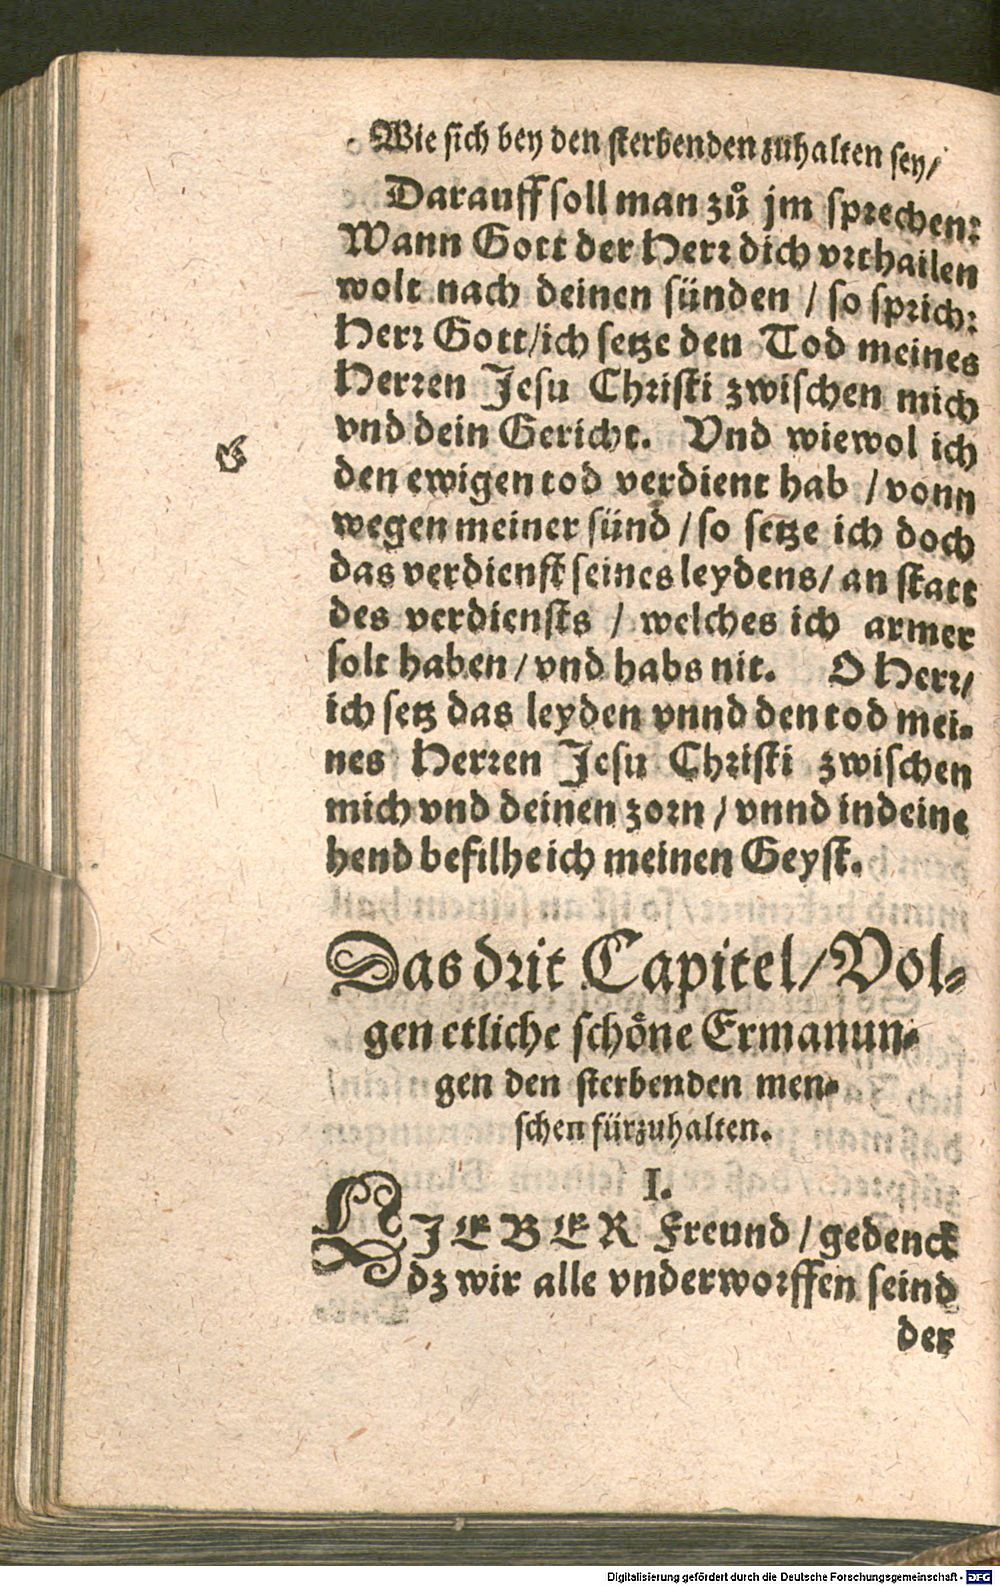 Wie sich bey den sterbenden zuhalten sey/
Darauff soll man zuͦ jm sprechen:
Wann Gott der Herr dich vrthailen
wolt nach deinen sünden / so sprich:
Herr Gott/ich setze den Tod meines
Herren Jesu Christi zwischen mich
vnd dein Gericht. Vnd wiewol ich
den ewigen tod verdient hab / vonn
wegen meiner sünd / so setze ich doch
das verdienst seines leydens/ an statt
des verdiensts / welches ich armer
solt haben / vnd habs nit. O Herr/
ich setz das leyden vnnd den tod mei-
nes Herren Jesu Christi zwischen
mich vnd deinen zorn / vnnd in deine
hend befilhe ich meinen Geyst.
Das drit Capitel/ Vol-
gen etliche schöne Ermanun-
gen den sterbenden men-
schen fürzuhalten.
I.
LIEBER Freund / gedenck
dz wir alle vnderworffen seind
der
Digitalisierung gefördert durch die Deutsche Forschungsgemeinschaft - DFG